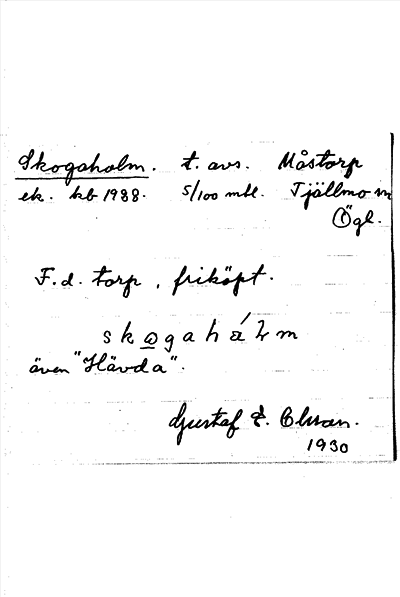 Skogaholm. t. avs. Måstorp
ek. kb 1988. 5/100 mtl. Tjällmo sn
Ögl.
F.d. torp, friköpt.
skωgahálm
även "Hävda".
Gustaf E. Olsson.
1930